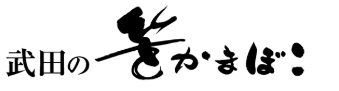 武田の笹かまぼこ